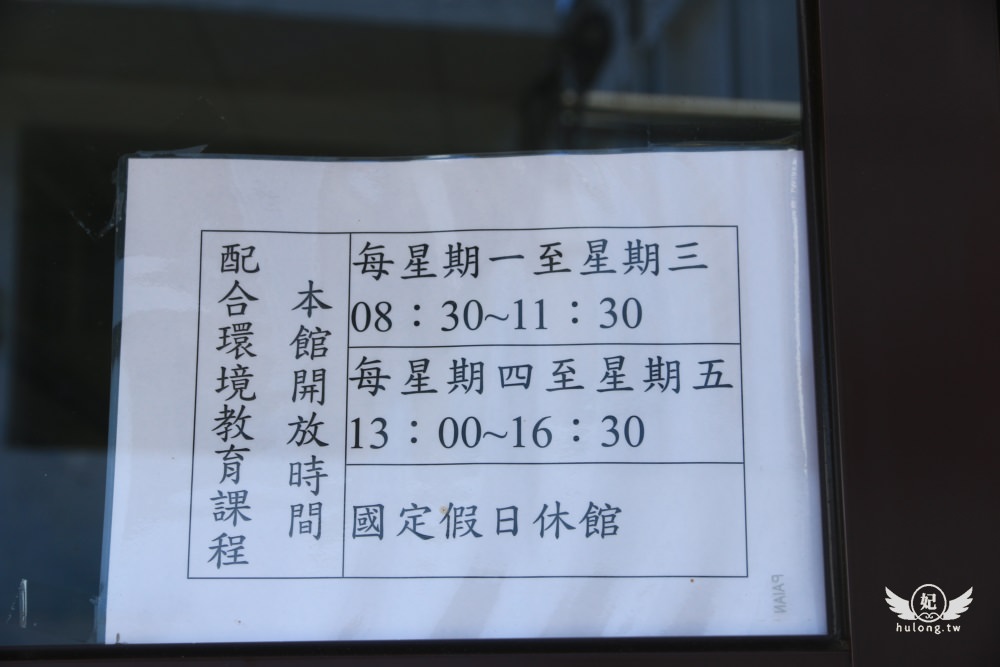 配合環境教育課程
本館開放時間
每星期一至星期三
08：30~11：30
每星期四至星期五
13：00~16：30
國定假日休館
PAIAN
妃
hulong.tw